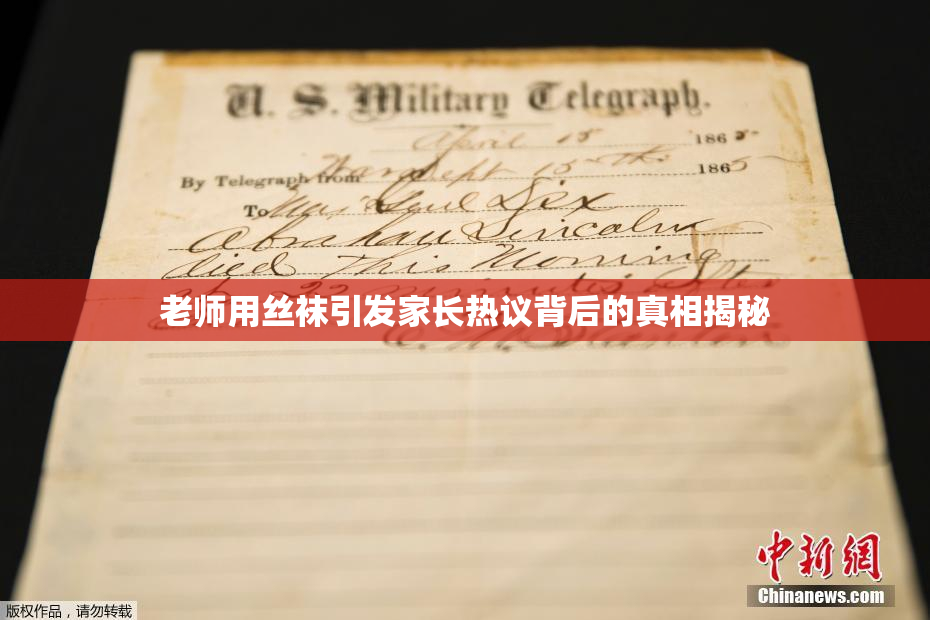 U. S. Military Telegraph.
April 15 1865
By Telegraph from War Dept 15th 1865
To Maj Genl Dix
Abraham Lincoln
died This Morning
at 22 minutes after
老师用丝袜引发家长热议背后的真相揭秘
E. M. Stanton
中新网
Chinanews.com
版权作品，请勿转载